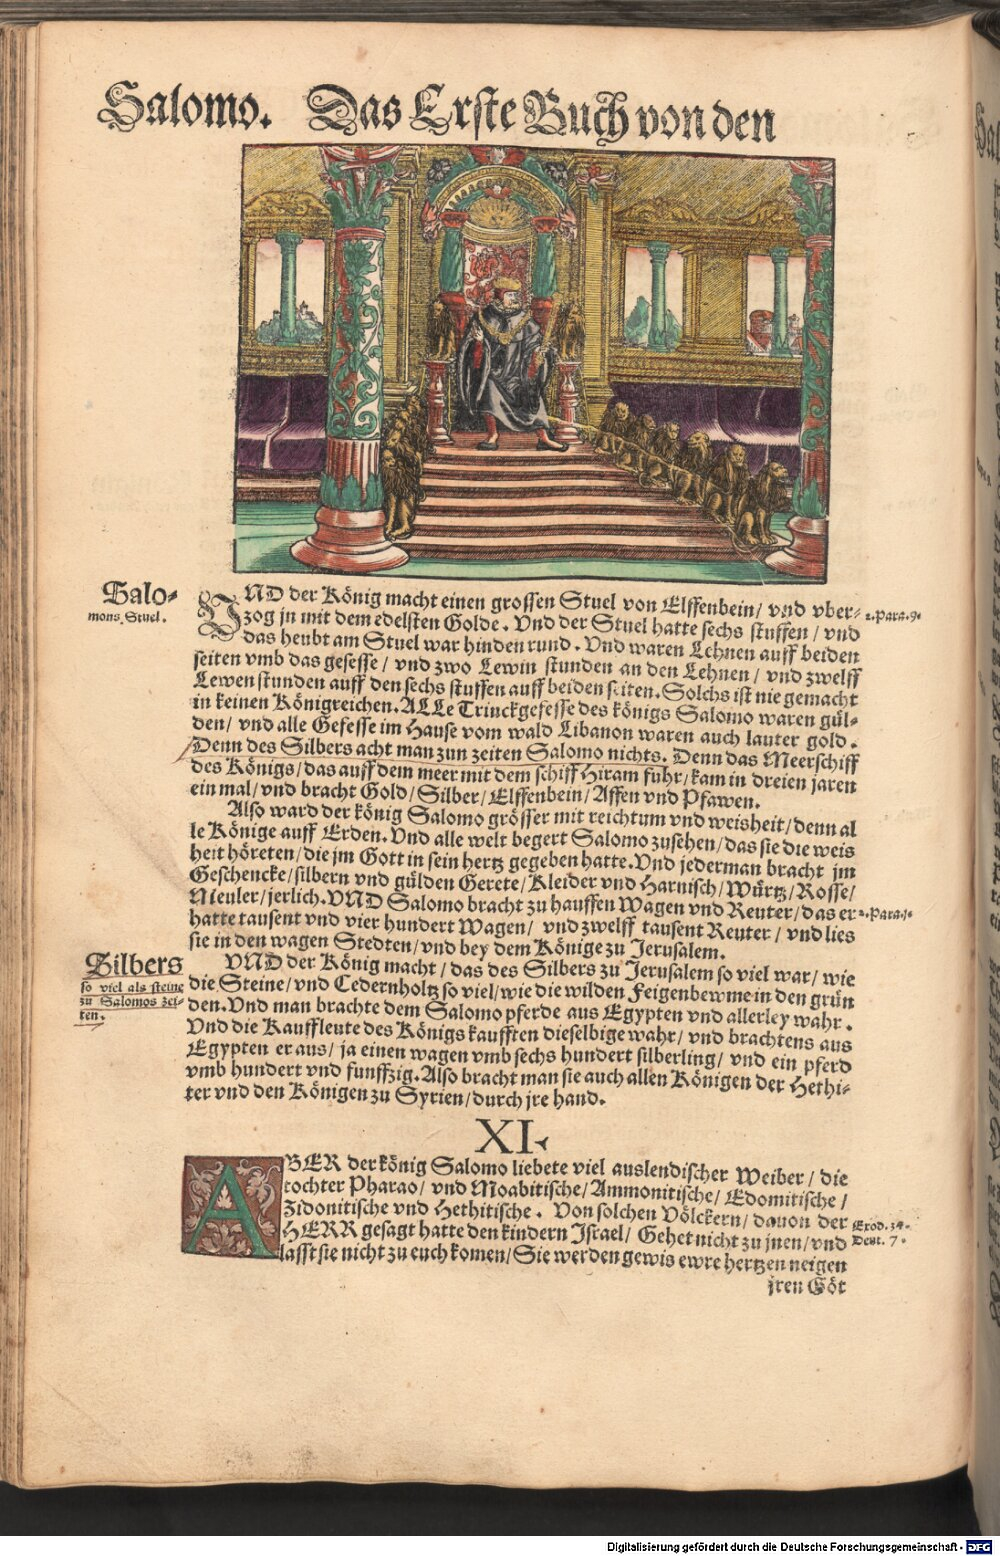 Salomo. Das Erste Buch von den
Salo-
mons Stuel.
VND der König macht einen grossen Stuel von Elffenbein/ vnd vber-
2. Para. 9.
zog jn mit dem edelsten Golde. Vnd der Stuel hatte sechs stuffen/ vnd
das heubt am Stuel war hinden rund. Vnd waren Lehnen auff beiden
seiten vmb das gesesse/ vnd zwo Lewin stunden an den Lehnen/ vnd zwelff
Lewen stunden auff den sechs stuffen auff beiden seiten. Solchs ist nie gemacht
in keinen Königreichen. ALLe Trinckgefesse des königs Salomo waren gül-
den/ vnd alle Gefesse im Hause vom wald Libanon waren auch lauter gold.
Denn des Silbers acht man zun zeiten Salomo nichts. Denn das Meerschiff
des Königs/ das auff dem meer mit dem schiff Hiram fuhr/ kam in dreien jaren
ein mal/ vnd bracht Gold/ Silber/ Elffenbein/ Affen vnd Pfawen.
Also ward der könig Salomo grösser mit reichtum vnd weisheit/ denn al
le Könige auff Erden. Vnd alle welt begert Salomo zusehen/ das sie die weis
heit höreten/ die jm Gott in sein hertz gegeben hatte. Vnd jederman bracht jm
Geschencke/ silbern vnd gülden Gerete/ Kleider vnd Harnisch/ Würtz/ Rosse/
Meuler/ jerlich. VND Salomo bracht zu hauffen Wagen vnd Reuter/ das er
2. Para. 1.
hatte tausent vnd vier hundert Wagen/ vnd zwelff tausent Reuter/ vnd lies
sie in den wagen Stedten/ vnd bey dem Könige zu Jerusalem.
Silbers
so viel als steine
zu Salomos zei-
ten.
VND der König macht/ das des Silbers zu Jerusalem so viel war/ wie
die Steine/ vnd Cedernholtz so viel/ wie die wilden Feigenbewme in den grün
den. Vnd man brachte dem Salomo pferde aus Egypten vnd allerley wahr.
Vnd die Kauffleute des Königs kaufften dieselbige wahr/ vnd brachtens aus
Egypten eraus/ ja einen wagen vmb sechs hundert silberling/ vnd ein pferd
vmb hundert vnd funffzig. Also bracht man sie auch allen Königen der Hethi-
ter vnd den Königen zu Syrien/ durch jre hand.
XI.
ABER der könig Salomo liebete viel auslendischer Weiber/ die
tochter Pharao/ vnd Moabitische/ Ammonitische/ Edomitische/
Zidonitische vnd Hethitische. Von solchen Völckern/ dauon der
Exod. 34.
HERR gesagt hatte den kindern Israel/ Gehet nicht zu jnen/ vnd
Deut. 7.
lasst sie nicht zu euch komen/ Sie werden gewis ewre hertzen neigen
jren Göt
Digitalisierung gefördert durch die Deutsche Forschungsgemeinschaft - DFG